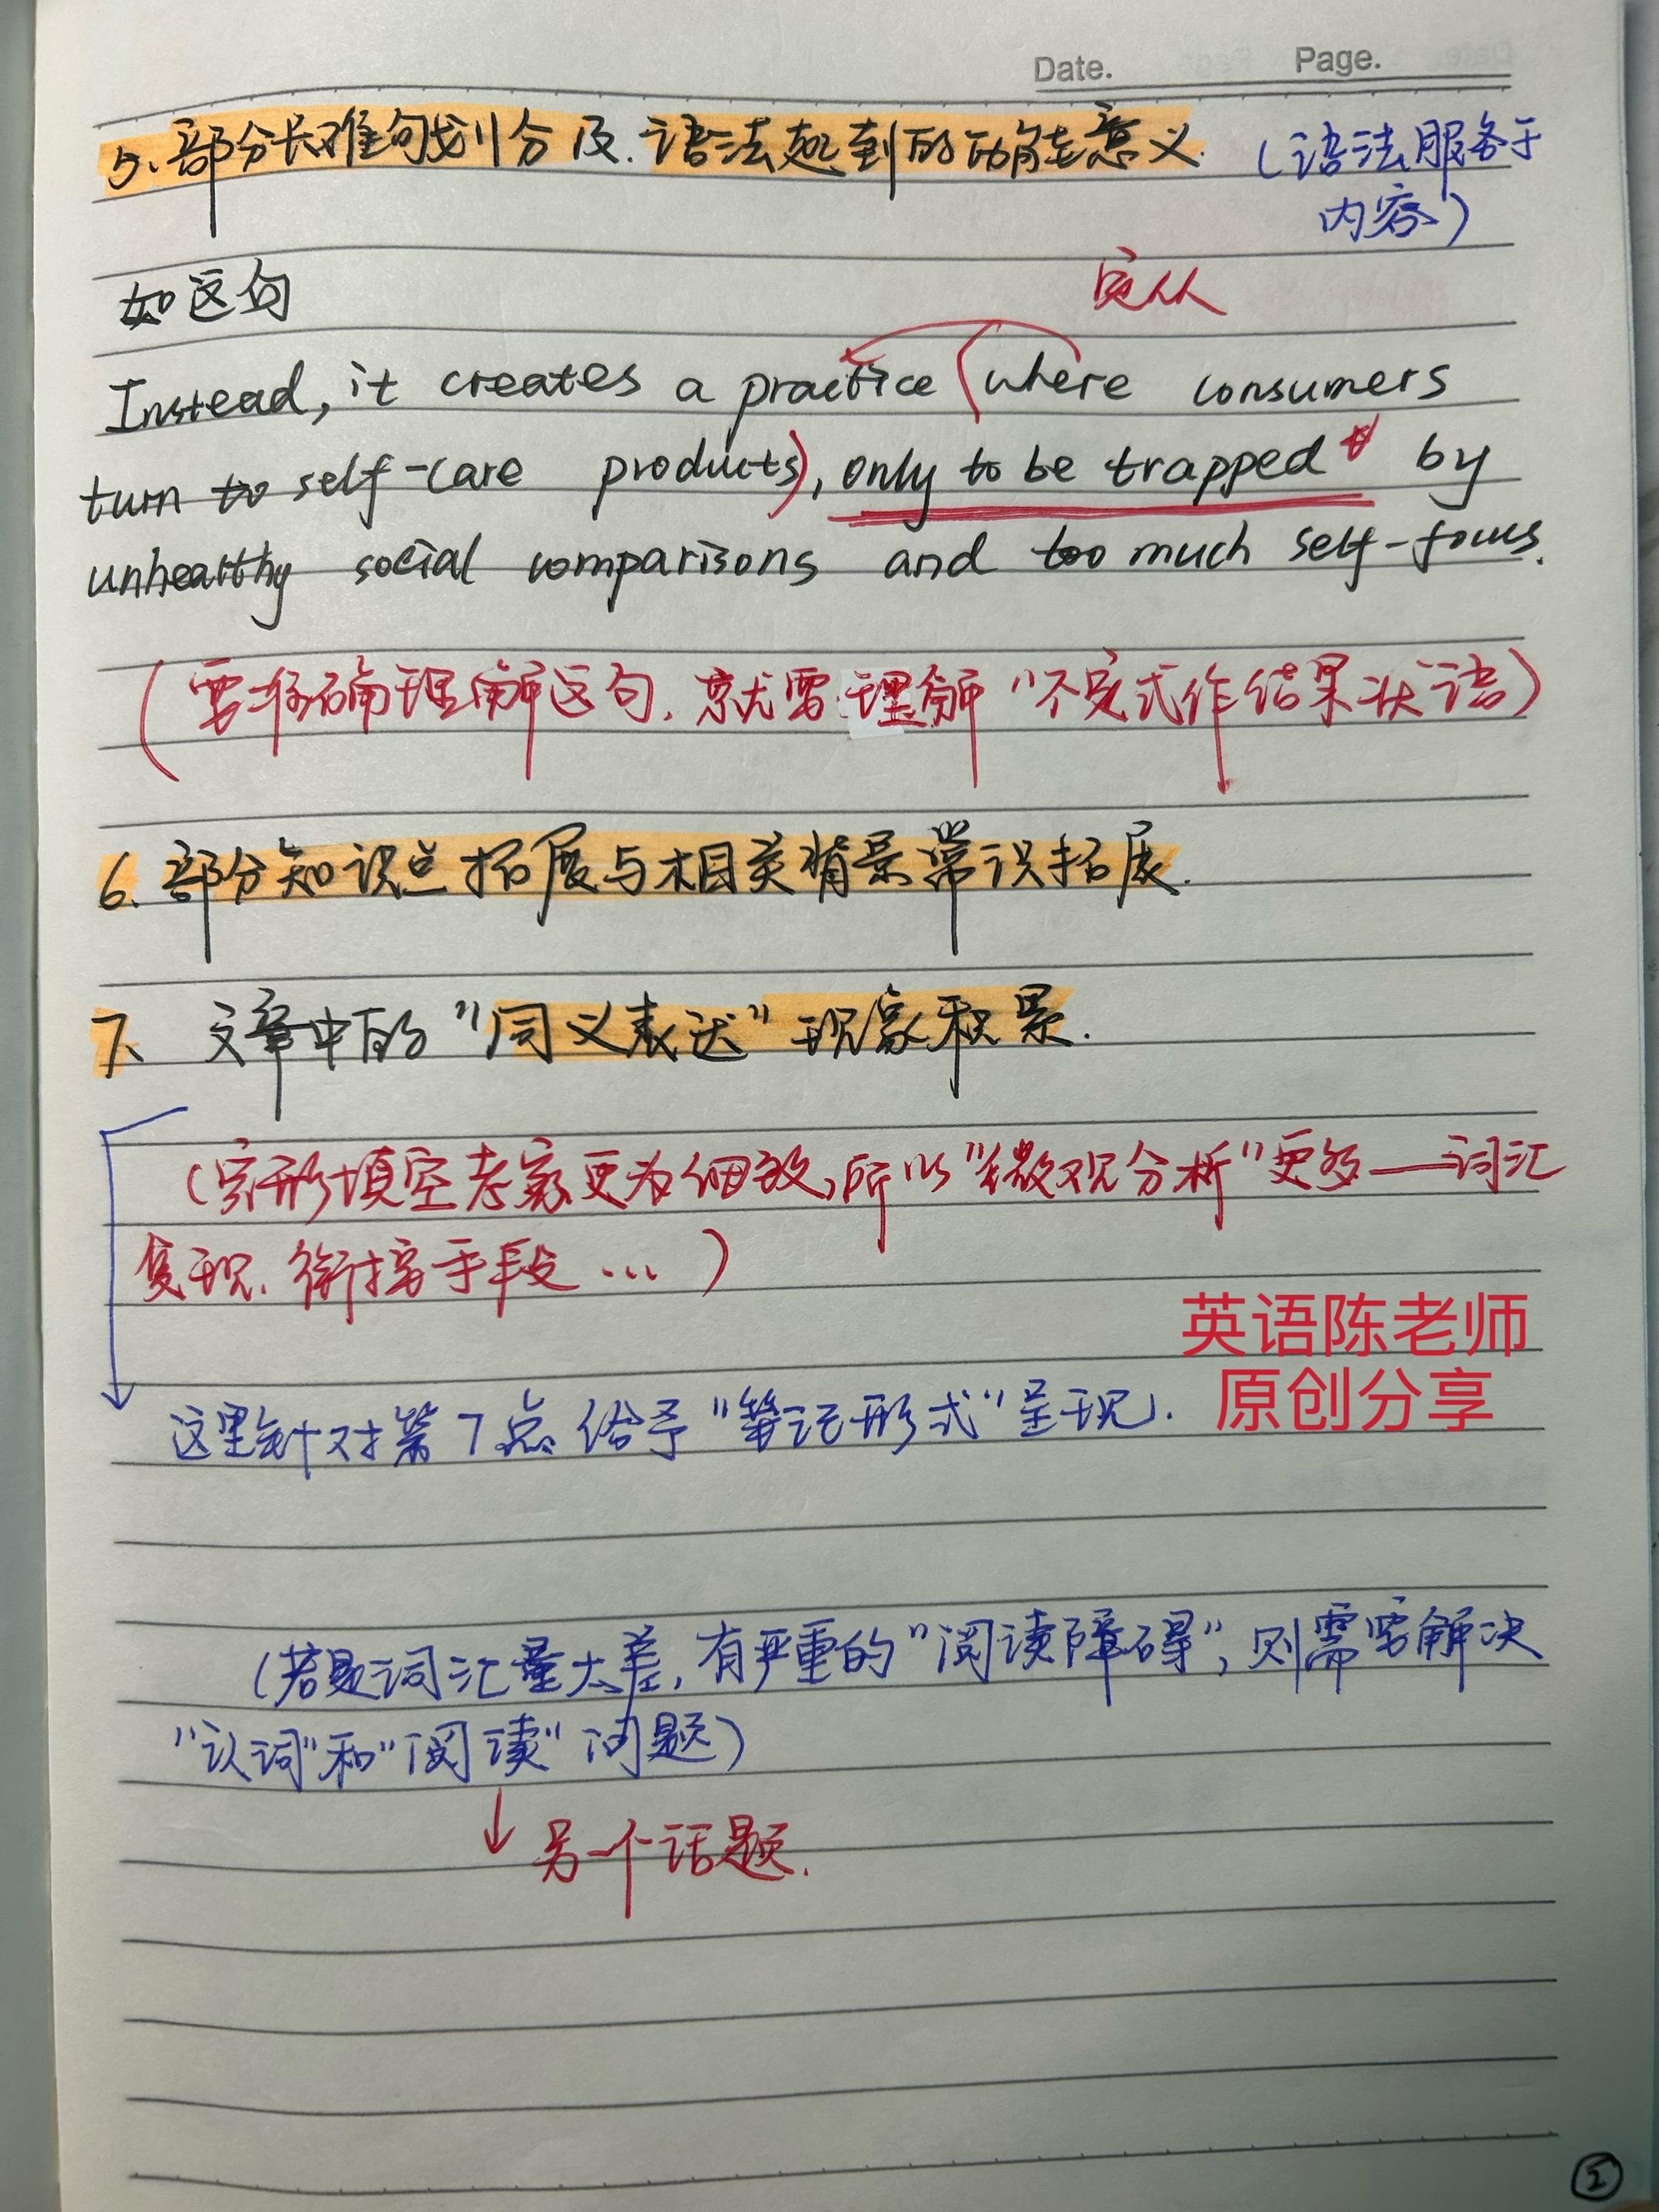 Date. Page.
5. 部分长难句划分及语法起到的功能意义. (语法服务于
内容)
如这句
定从
Instead, it creates a practice (where consumers
turn to self-care products), only to be trapped by
unhealthy social comparisons and too much self-focus.
(要准确理解这句, 就要理解"不定式作结果状语)
6. 部分知识点拓展与相关背景常识拓展.
7. 文章中的"同义表达"现象积累.
(完形填空考察更为细致, 所以"微观分析"更多——词汇
复现、衔接手段...)
英语陈老师
原创分享
这里针对第7点给予"笔记形式"呈现.
(若是词汇量太差, 有严重的"阅读障碍", 则需要解决
"认词"和"阅读"问题)
↓ 另一个话题.
②